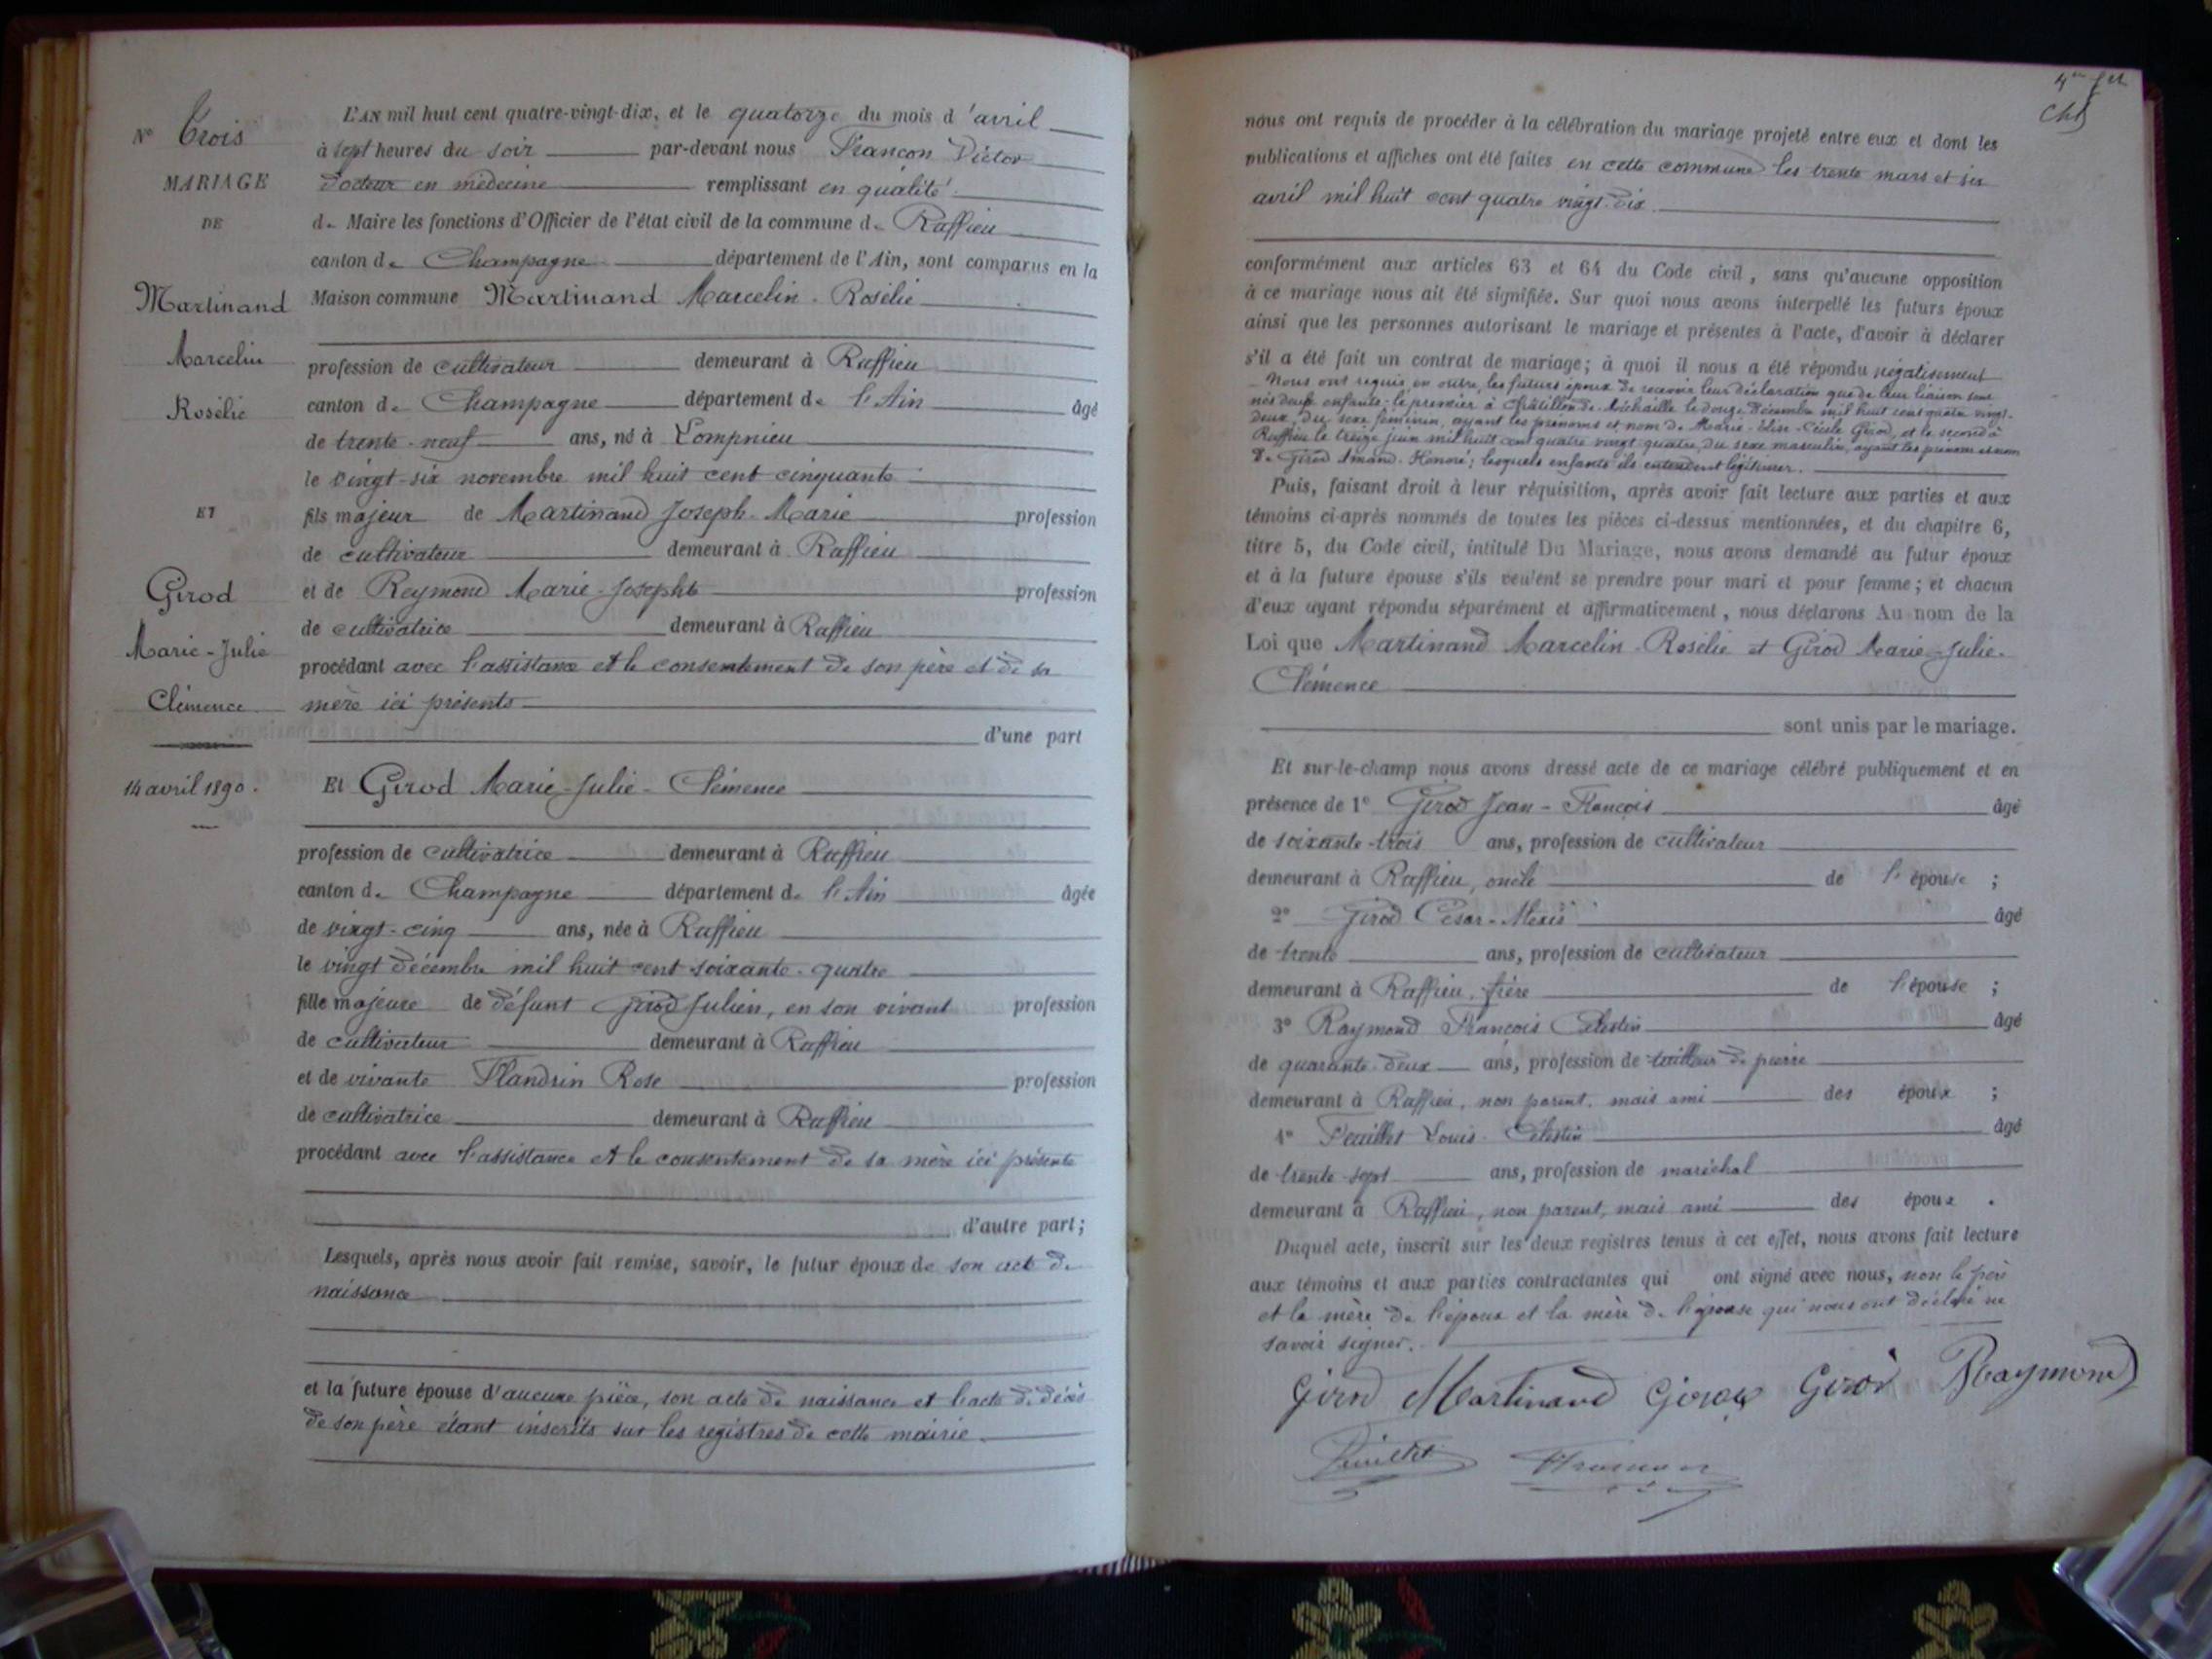 N° Trois
MARIAGE
DE
Martinand
Marcelin
Rosélie
ET
Girod
Marie-Julie
Clémence
14 avril 1890.
L'AN mil huit cent quatre-vingt-dix, et le quatorze du mois d'avril
à sept heures du soir par-devant nous Françon Victor
Docteur en médecine remplissant en qualité
de Maire les fonctions d'Officier de l'état civil de la commune de Ruffieu
canton de Champagne département de l'Ain, sont comparus en la
Maison commune Martinand Marcelin-Rosélie
profession de cultivateur demeurant à Ruffieu
canton de Champagne département de l'Ain âgé
de trente-neuf ans, né à Lompnieu
le vingt-six novembre mil huit cent cinquante
fils majeur de Martinand Joseph-Marie profession
de cultivateur demeurant à Ruffieu
et de Reymond Marie-Josephte profession
de cultivatrice demeurant à Ruffieu
procédant avec l'assistance et le consentement de son père et de sa
mère ici présents
d'une part
Et Girod Marie-Julie-Clémence
profession de cultivatrice demeurant à Ruffieu
canton de Champagne département de l'Ain âgée
de vingt-cinq ans, née à Ruffieu
le vingt décembre mil huit cent soixante-quatre
fille majeure de défunt Girod Julien, en son vivant profession
de cultivateur demeurant à Ruffieu
et de vivante Flandrin Rose profession
de cultivatrice demeurant à Ruffieu
procédant avec l'assistance et le consentement de sa mère ici présente
d'autre part;
Lesquels, après nous avoir fait remise, savoir, le futur époux de son acte de
naissance
et la future épouse d'aucune pièce, son acte de naissance et l'acte de décès
de son père étant inscrits sur les registres de cette mairie.
4me
nous ont requis de procéder à la célébration du mariage projeté entre eux et dont les
publications et affiches ont été faites en cette commune les trente mars et six
avril mil huit cent quatre vingt-dix
conformément aux articles 63 et 64 du Code civil, sans qu'aucune opposition
à ce mariage nous ait été signifiée. Sur quoi nous avons interpellé les futurs époux
ainsi que les personnes autorisant le mariage et présentes à l'acte, d'avoir à déclarer
s'il a été fait un contrat de mariage; à quoi il nous a été répondu négativement
Nous ont requis, en outre, les futurs époux de recevoir leur déclaration que de leur liaison sont
nés deux enfants: le premier à Châtillon-de-Michaille le douze décembre mil huit cent quatre vingt-
deux, du sexe féminin, ayant les prénoms et nom de Marie-Elise-Cécile Girod, et le second à
Ruffieu le treize juin mil huit cent quatre vingt-quatre, du sexe masculin, ayant les prénoms et nom
de Girod Amand-Honoré; lesquels enfants ils entendent légitimer.
Puis, faisant droit à leur réquisition, après avoir fait lecture aux parties et aux
témoins ci-après nommés de toutes les pièces ci-dessus mentionnées, et du chapitre 6,
titre 5, du Code civil, intitulé Du Mariage, nous avons demandé au futur époux
et à la future épouse s'ils veulent se prendre pour mari et pour femme; et chacun
d'eux ayant répondu séparément et affirmativement, nous déclarons Au nom de la
Loi que Martinand Marcelin-Rosélie et Girod Marie-Julie-
Clémence
sont unis par le mariage.
Et sur-le-champ nous avons dressé acte de ce mariage célébré publiquement et en
présence de 1° Girod Jean-François âgé
de soixante-trois ans, profession de cultivateur
demeurant à Ruffieu, oncle de l'épouse ;
2° Girod César-Alexis âgé
de trente ans, profession de cultivateur
demeurant à Ruffieu, frère de l'épouse ;
3° Raymond François Célestin âgé
de quarante-deux ans, profession de tailleur de pierre
demeurant à Ruffieu, non parent, mais ami des époux ;
4° Feuillet Louis-Célestin âgé
de trente-sept ans, profession de maréchal
demeurant à Ruffieu, non parent, mais ami des époux .
Duquel acte, inscrit sur les deux registres tenus à cet effet, nous avons fait lecture
aux témoins et aux parties contractantes qui ont signé avec nous, non le père
et la mère de l'époux et la mère de l'épouse qui nous ont déclaré ne
savoir signer.
Girod Martinand Girod Girod Raymond
Feuillet Françon